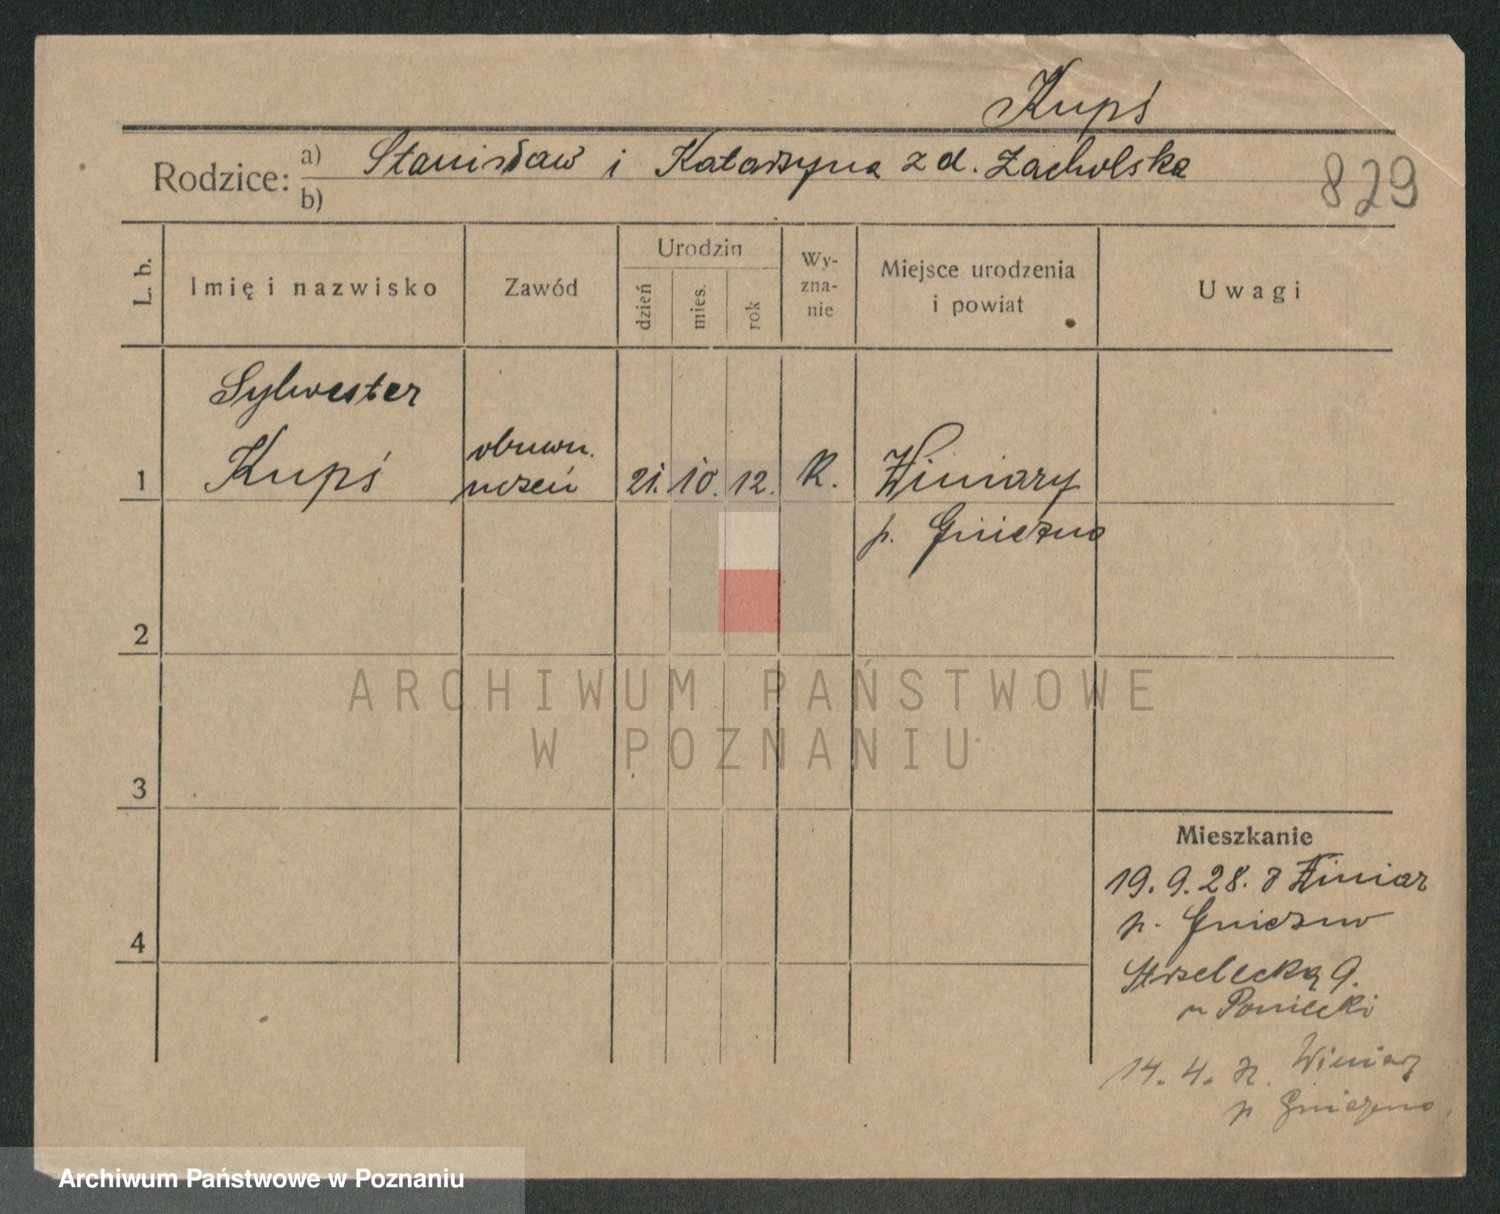 Kupś
Rodzice: a) Stanisław i Katarzyna z d. Zacholska
b)
829
L. b.
Imię i nazwisko
Zawód
Urodzin
dzień
mies.
rok
Wy-
zna-
nie
Miejsce urodzenia
i powiat
Uwagi
Sylwester
1 Kupś
obuwn.
uczeń
21. 10. 12. K. Winiary
p. Gniezno
2
3
4
ARCHIWUM PAŃSTWOWE
W POZNANIU
Mieszkanie
19. 9. 28. z Winiar
p. Gniezno
Strzelecka 9.
u Poniecki
14. 4. Winiary
p Gniezno
Archiwum Państwowe w Poznaniu